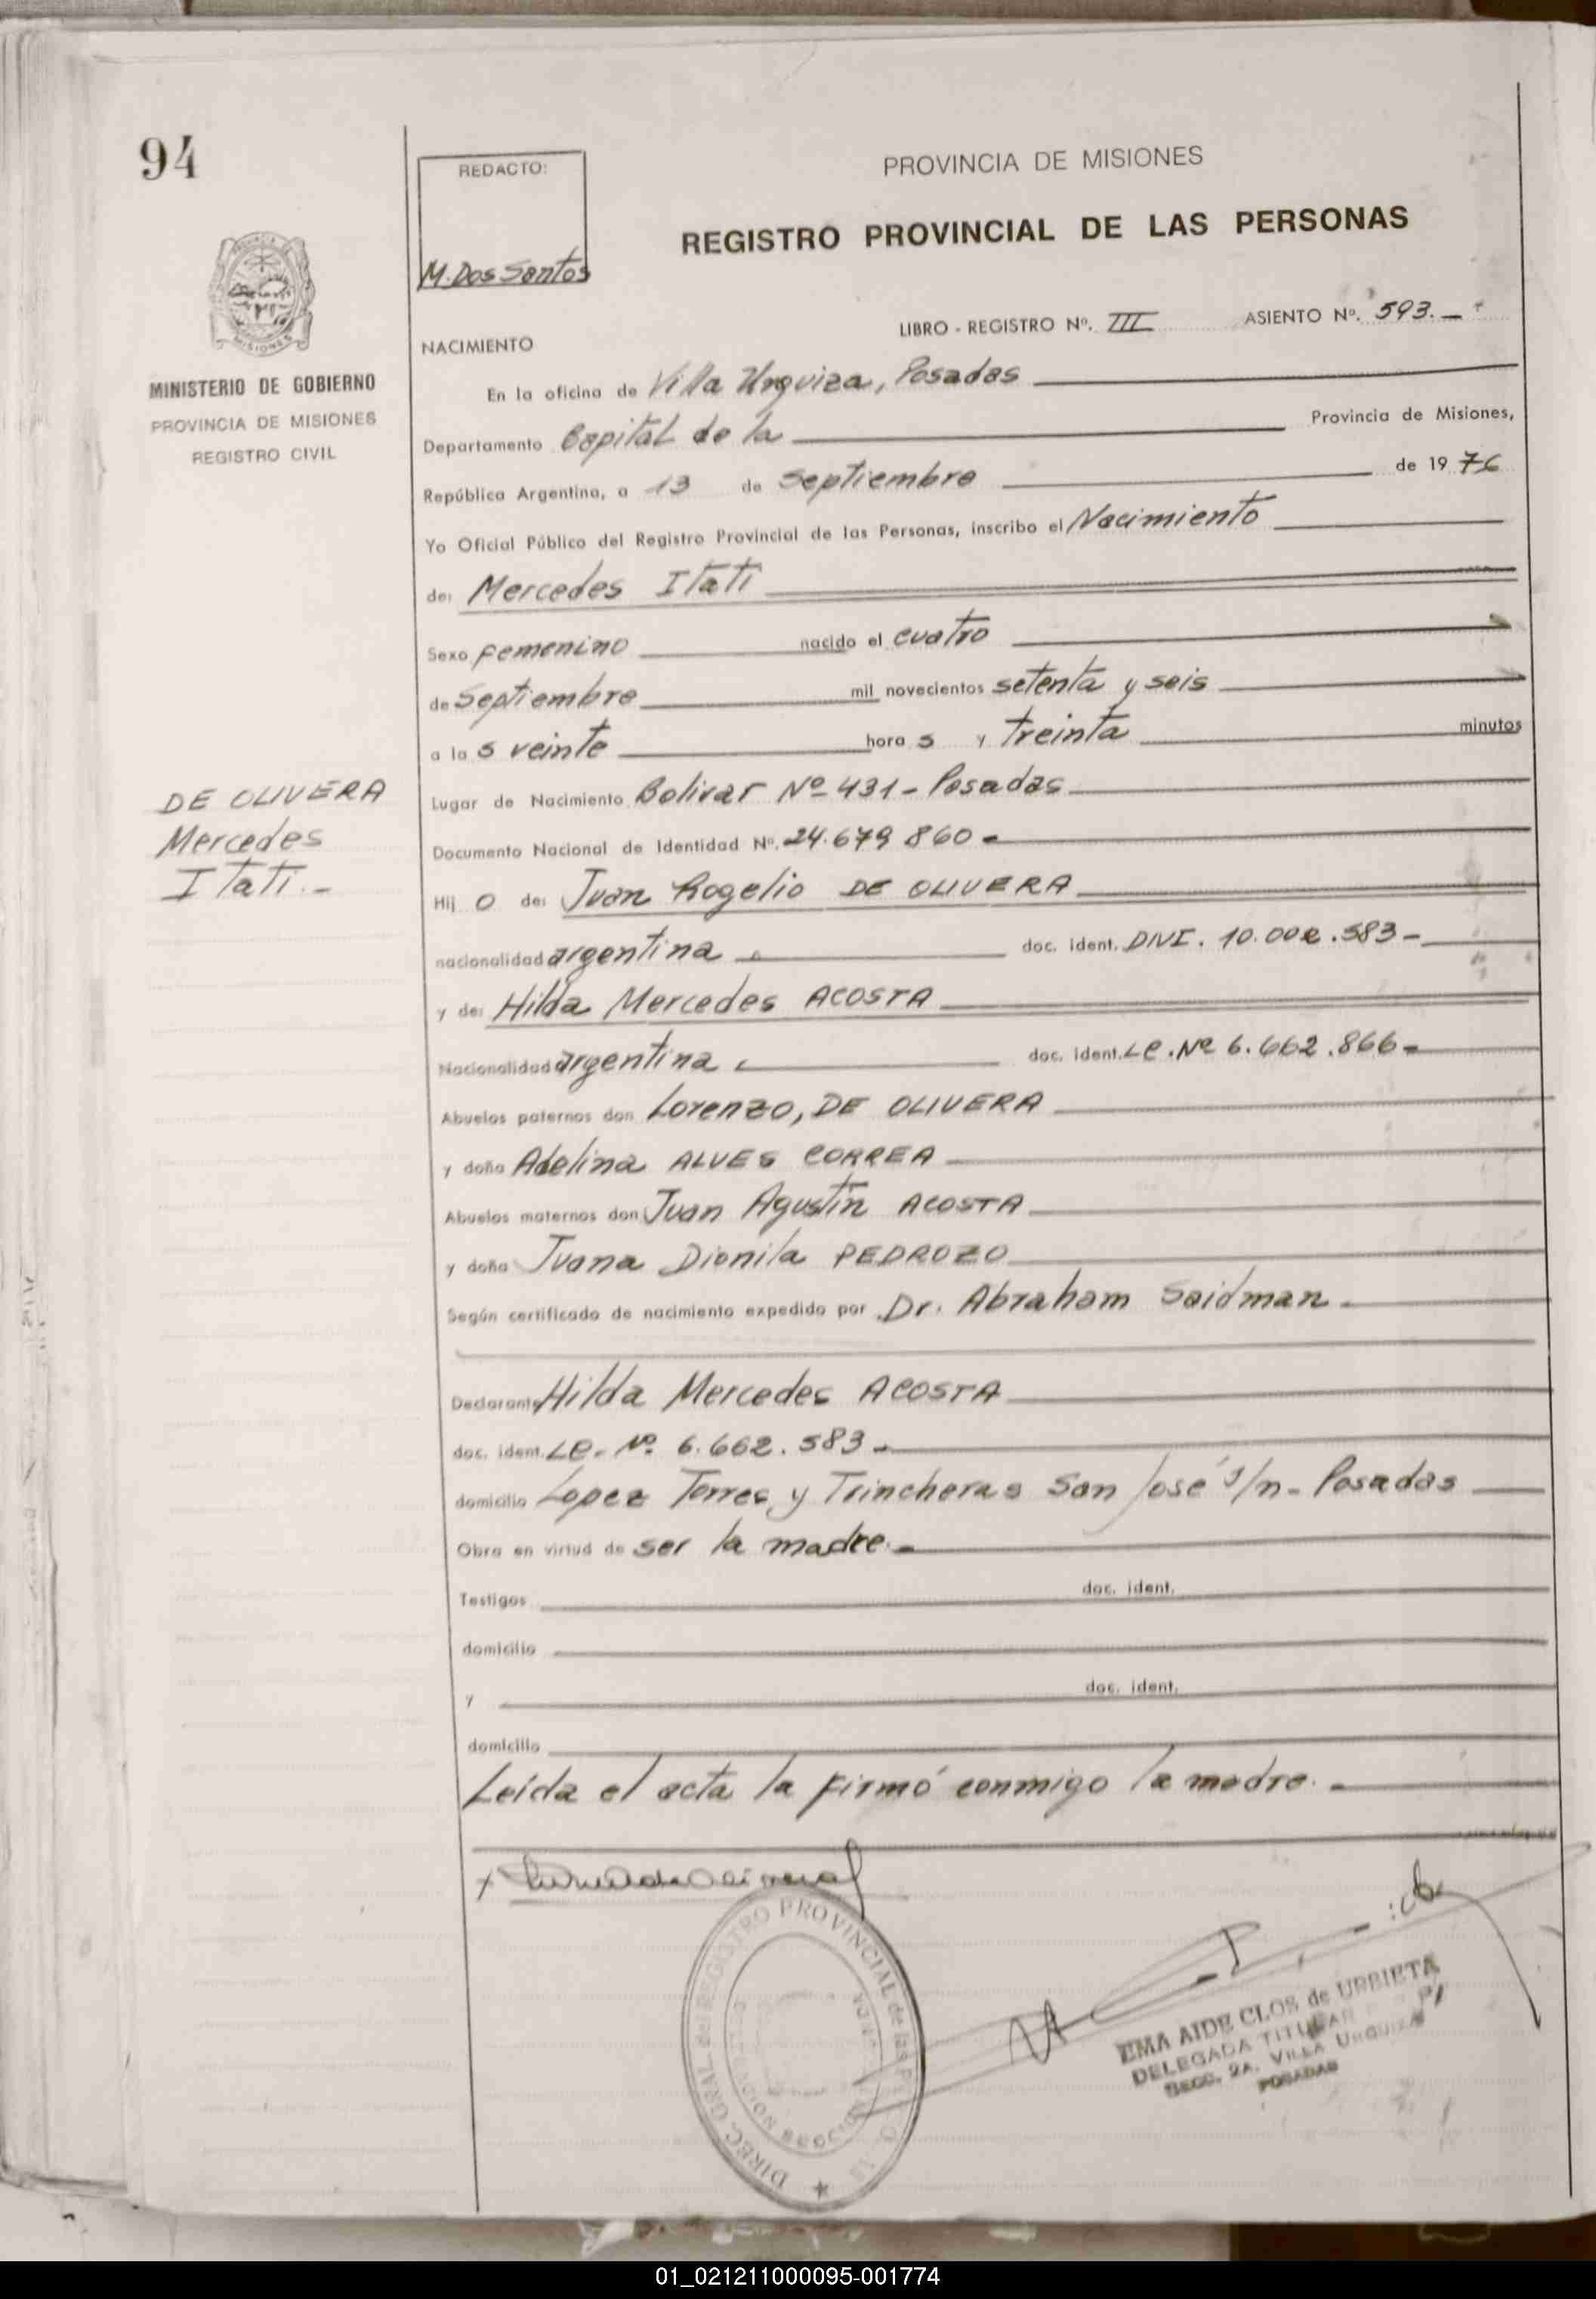 94
REDACTO:
M. Dos Santos
PROVINCIA DE MISIONES
REGISTRO PROVINCIAL DE LAS PERSONAS
MINISTERIO DE GOBIERNO
PROVINCIA DE MISIONES
REGISTRO CIVIL
LIBRO - REGISTRO Nº. III ASIENTO Nº. 593.-
NACIMIENTO
En la oficina de Villa Urquiza, Posadas
Departamento Capital de la Provincia de Misiones,
República Argentina, a 13 de Septiembre de 1976
Yo Oficial Público del Registro Provincial de las Personas, inscribo el Nacimiento
de: Mercedes Itatí
Sexo femenino nacido el cuatro
de Septiembre mil novecientos setenta y seis
a las veinte horas y treinta minutos
DE OLIVERA
Mercedes
Itatí.-
Lugar de Nacimiento Bolivar Nº 431 - Posadas
Documento Nacional de Identidad Nº. 24.679.860-
Hij o de: Juan Rogelio DE OLIVERA
nacionalidad argentina doc. ident. DNI. 10.002.583-
y de: Hilda Mercedes ACOSTA
Nacionalidad argentina doc. ident. Le. Nº 6.662.866-
Abuelos paternos don Lorenzo, DE OLIVERA
y doña Adelina ALVES CORREA
Abuelos maternos don Juan Agustín ACOSTA
y doña Juana Dionila PEDROZO
Según certificado de nacimiento expedido por Dr. Abraham Saidman
Declarante Hilda Mercedes ACOSTA
doc. ident. Le. Nº. 6.662.583-
domicilio Lopez Torres y Trincheras San José s/n - Posadas
Obra en virtud de ser la madre.-
Testigos doc. ident.
domicilio
y doc. ident.
domicilio
Leída el acta la firmó conmigo la madre.-
DIREC. GRAL. del REGISTRO PROVINCIAL de las
EMA AIDE CLOS de URRIETA
DELEGADA TITULAR
SECC. 2A. VILLA URQUIZA
POSADAS
01_021211000095-001774